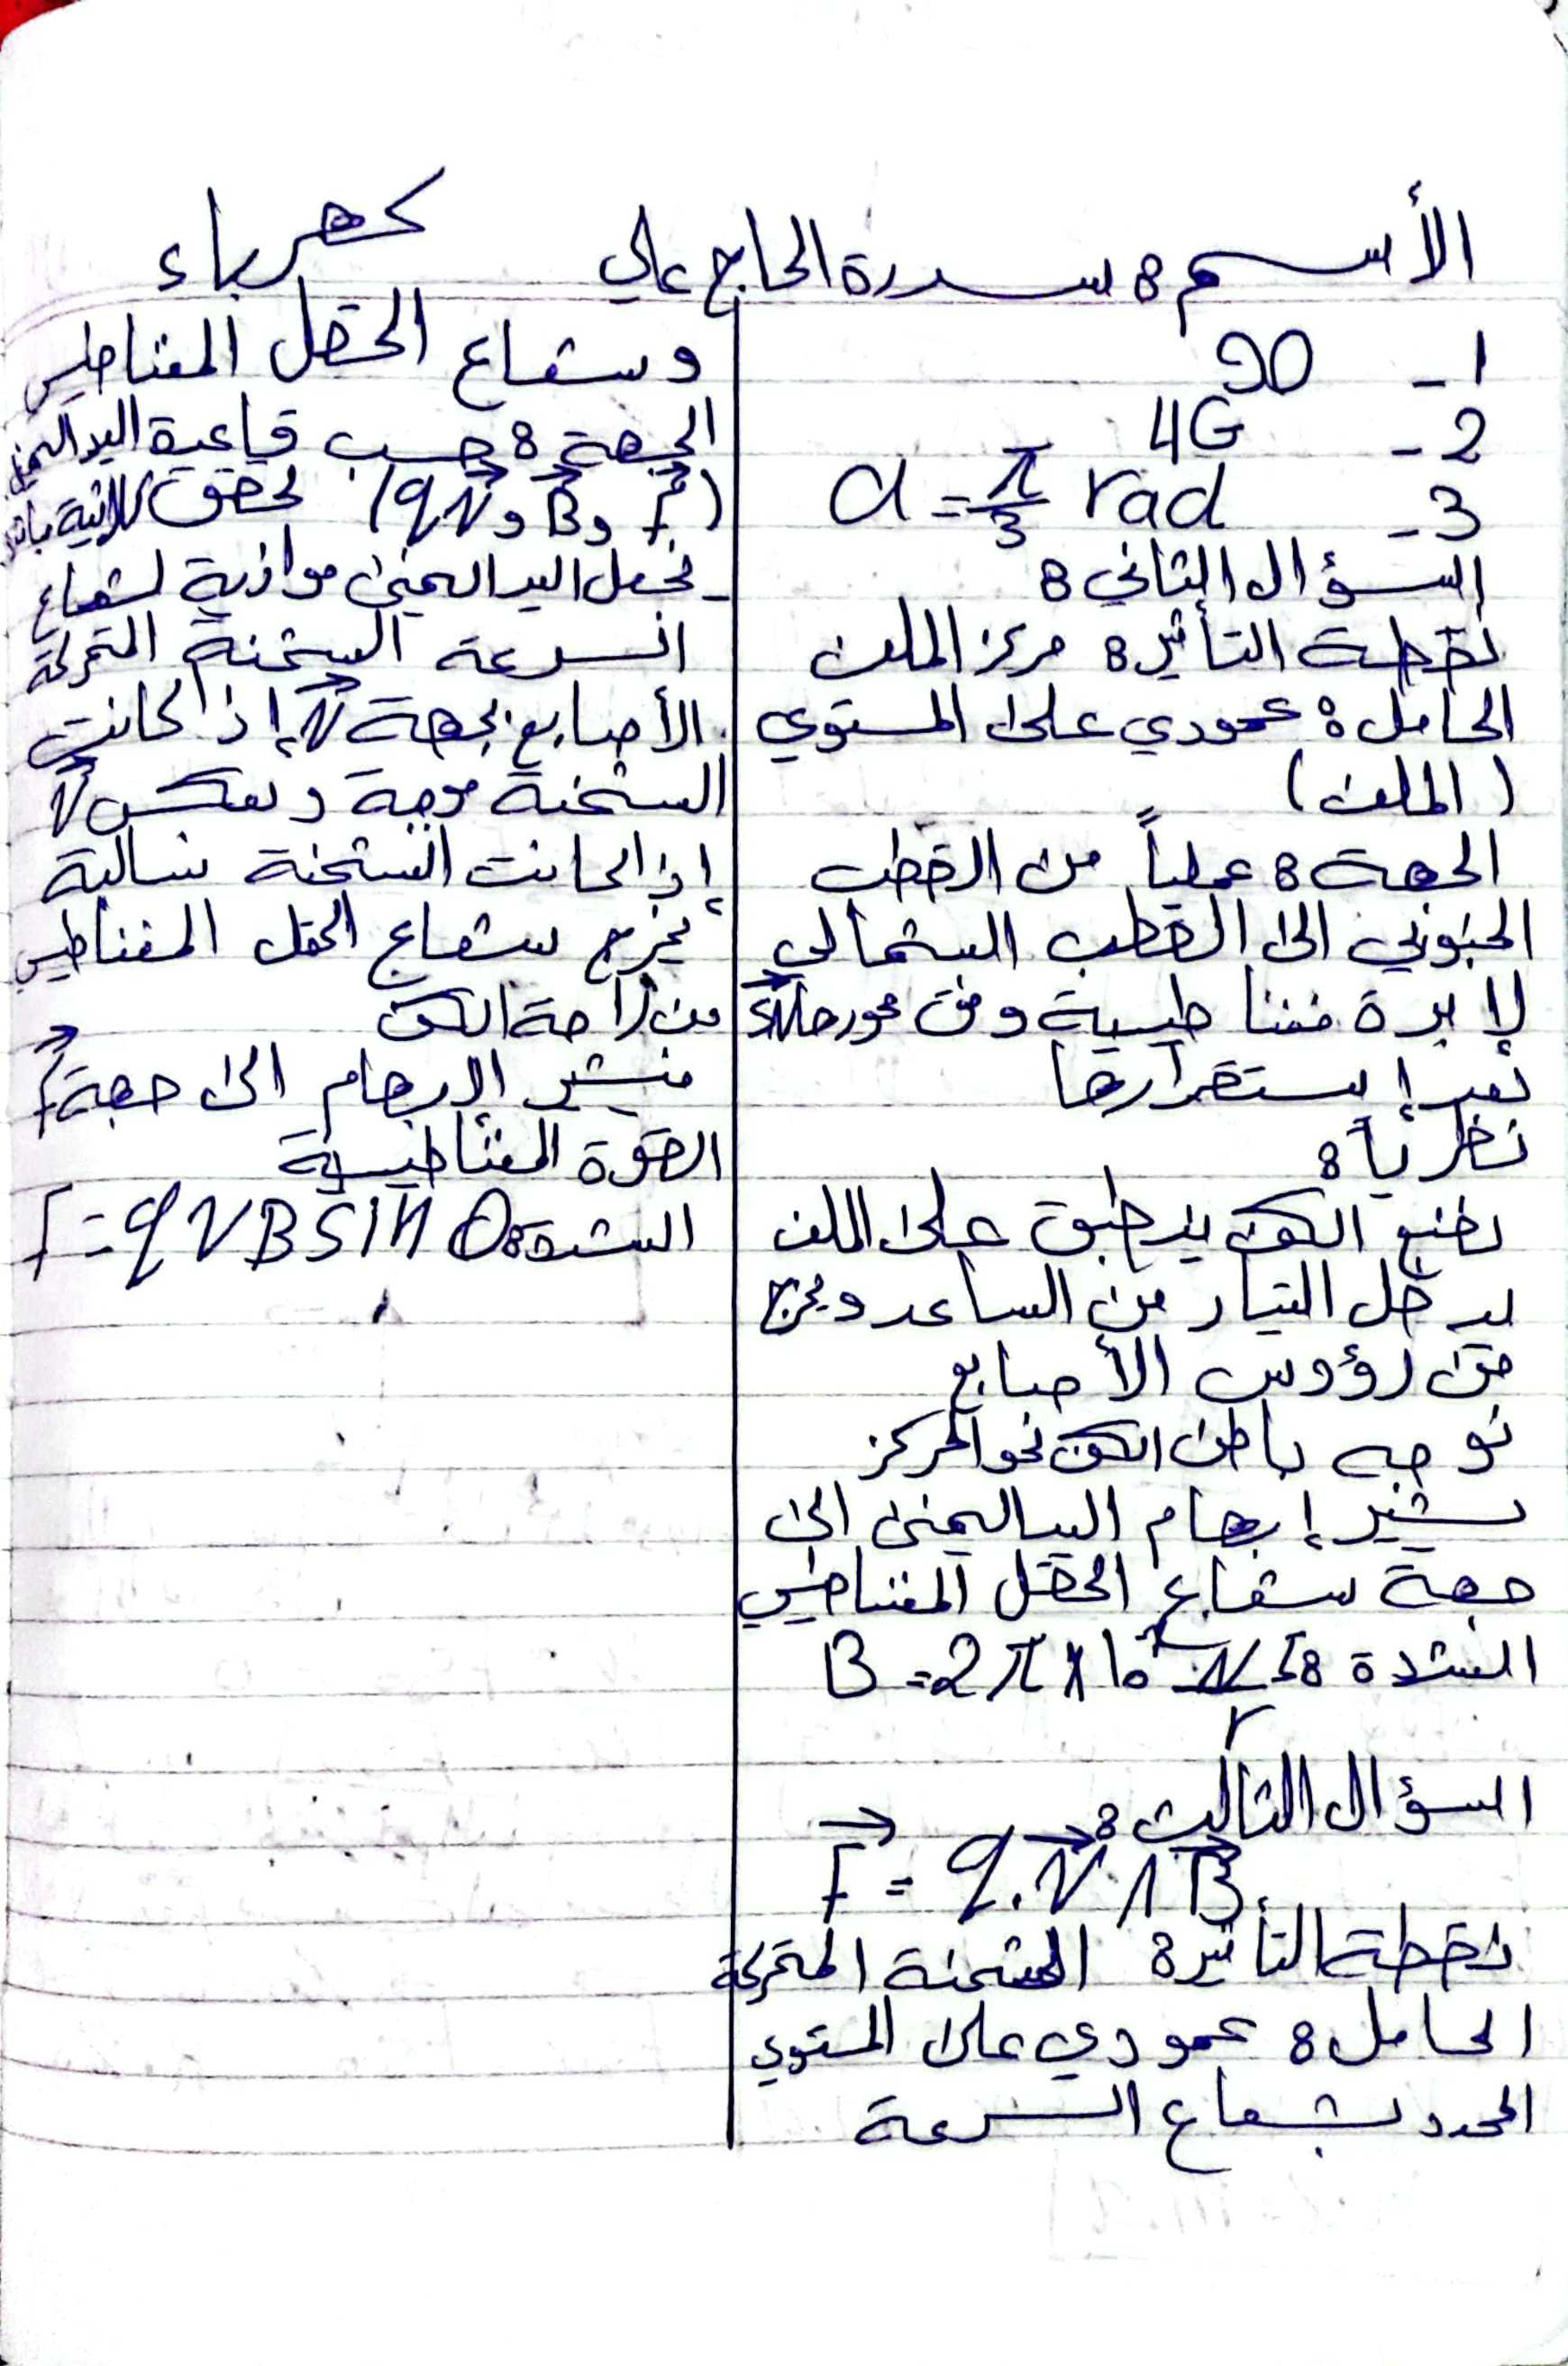 الأسم: سدرة الحاج علي
كهرباء
1- 90
2- 4G
3- α = π/3 rad
السؤال الثاني:
نقطة التأثير: مركز الملف
الحامل: عمودي على المستوي
(الملف)
الجهة: عملياً من القطب
الجنوبي الى القطب الشمالي
لإبرة مغناطيسية وفق محور
بعد إستقرارها
نظرياً:
نضع الكف ينطبق على الملف
يدخل التيار من الساعد ويخرج
من رؤوس الأصابع
نوجه باطن الكف نحو المركز
يشير إبهام اليد اليمنى الى
جهة شعاع الحقل المغناطيسي
الشدة: B = 2π × 10⁻⁷ NI/r
السؤال الثالث:
F⃗ = q.v⃗ ∧ B⃗
نقطة التأثير: الشحنة المتحركة
الحامل: عمودي على المستوي
المحدد بشعاع السرعة
وشعاع الحقل المغناطيسي
الجهة: حسب قاعدة اليد اليمنى
(F⃗ و B⃗ و qv⃗) تحقق ثلاثية
- نجعل اليد اليمنى موازية لشعاع
السرعة الشحنة المتحركة
الأصابع بجهة v⃗ إذا كانت
الشحنة موجبة وبعكس v⃗
إذا كانت الشحنة سالبة
يخرج شعاع الحقل المغناطيسي
من راحة الكف
فيشير الإبهام الى جهة F⃗
القوة المغناطيسية
الشدة: F = qvB sin θ